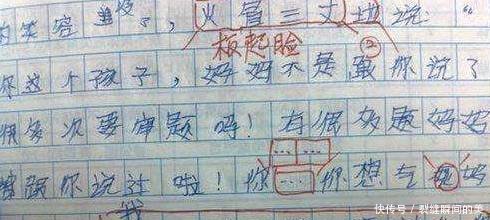 的笑容變了，火冒三丈地说：“
板起脸
②
你这个孩子，好妈不是跟你说了
很多次要审题吗！有很多题妈妈
跟你说过啦！你……你想气死妈
我
快传号／裂缝瞬间的美